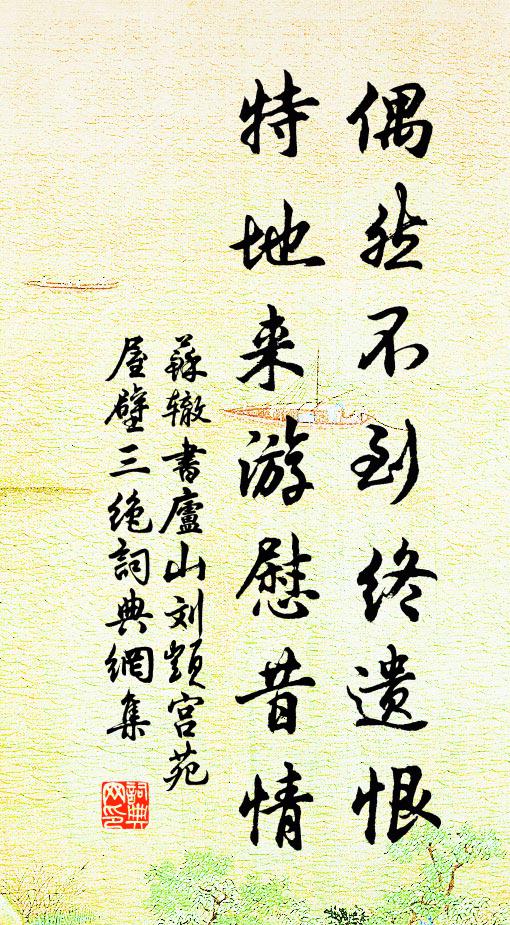 偶然不到终遗恨
特地来游慰昔情
蘇辙書廬山刘顗宫苑
屋壁三绝詞典網集
詞典网印